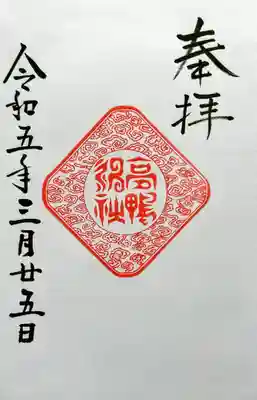 奉拝
高鴨
神社
令和五年三月廿五日